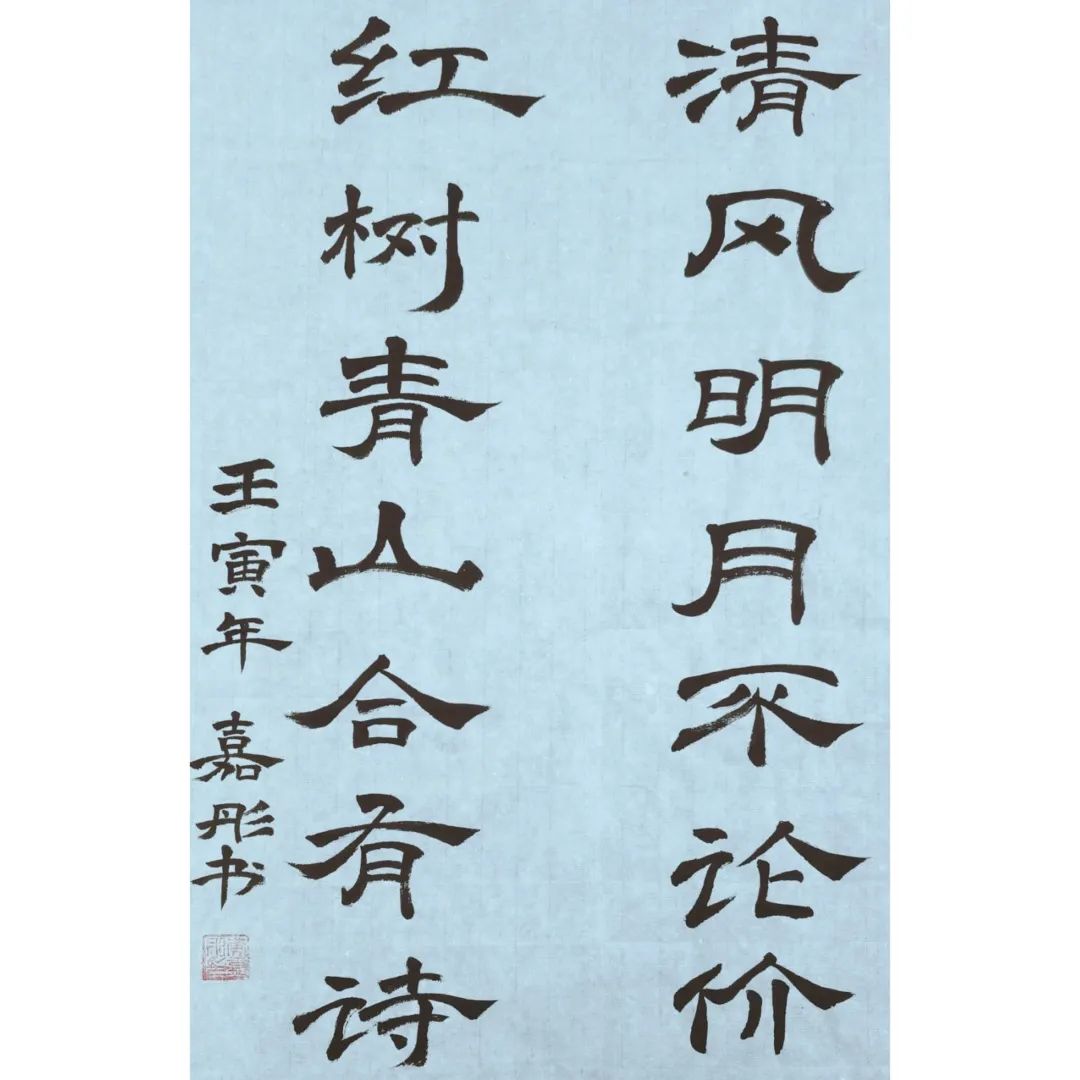 清风明月不论价
红树青山合有诗
壬寅年 嘉彤书